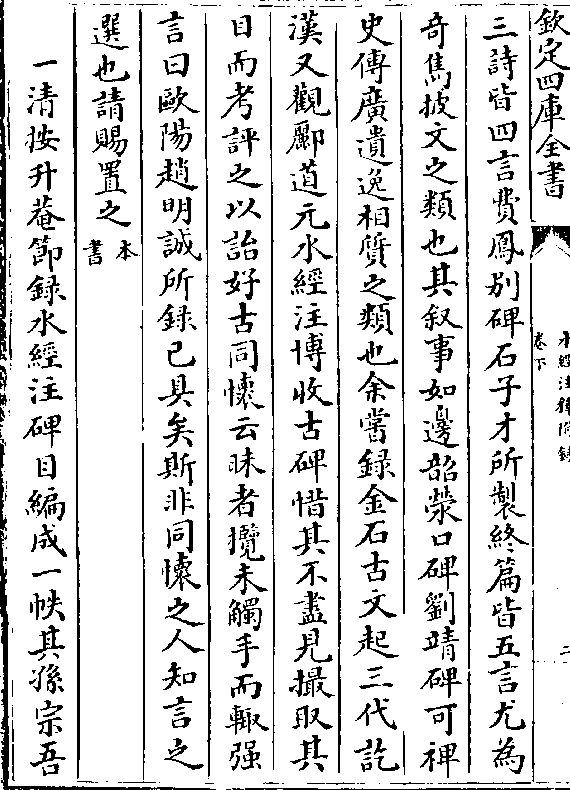 欽定四庫全書
水經注釋附錄
卷下
二
三詩皆四言費鳳别碑石子才所製終篇皆五言尤為
奇雋披文之類也其叙事如邊韶滎口碑劉靖碑可裨
史傳廣遺逸相質之類也余嘗録金石古文起三代訖
漢又觀酈道元水經注博收古碑惜其不盡見撮取其
目而考評之以詒好古同懷云昧者攬未觸手而輙强
言曰歐陽趙明誠所録已具矣斯非同懷之人知言之
選也請賜置之本書
一清按升菴節録水經注碑目編成一帙其孫宗吾